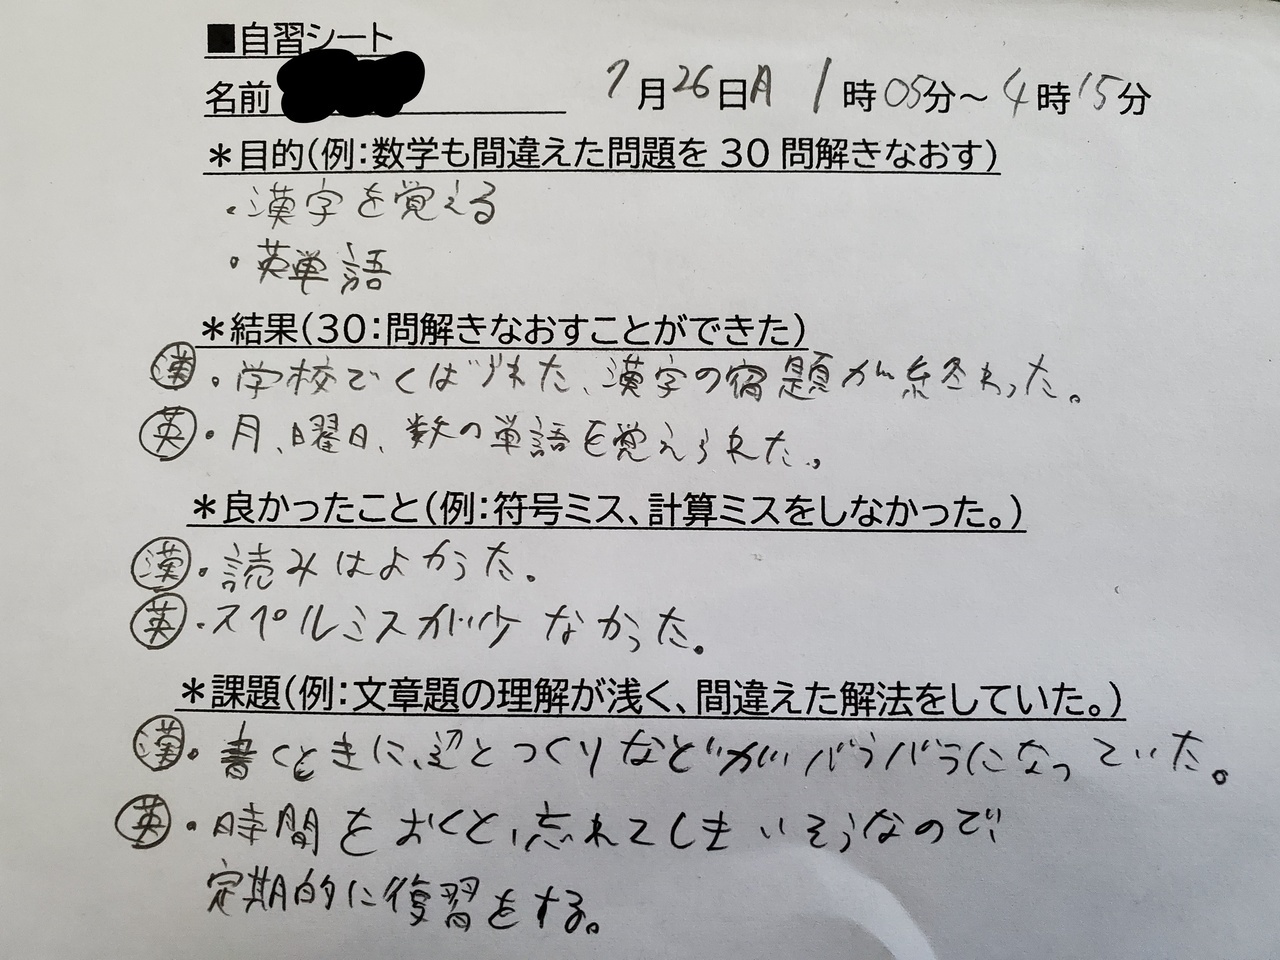 ■自習シート
名前 7月26日月 1時05分～4時15分
＊目的(例:数学も間違えた問題を30問解きなおす)
・漢字を覚える
・英単語
＊結果(30:問解きなおすことができた)
漢・学校でくばられた、漢字の宿題が終わった。
英・月、曜日、数の単語を覚えられた。
＊良かったこと(例:符号ミス、計算ミスをしなかった。)
漢・読みはよかった。
英・スペルミスが少なかった。
＊課題(例:文章題の理解が浅く、間違えた解法をしていた。)
漢・書くときに、辺とつくりなどがバラバラになっていた。
英・時間をおくと、忘れてしまいそうなので
定期的に復習をする。